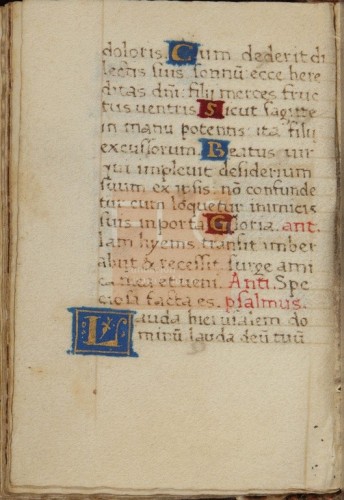 doloris. Cum dederit di
lectis suis sonnũ: ecce here
ditas dñi: filij merces fruc
tus ventris. Sicut sagitte
in manu potentis: ita filij
excussorum. Beatus vir
qui implevit desiderium
suum ex ipsis: nõ confunde
tur cum loquetur inimicis
suis in porta. Gloria. ant.
Iam hyems transijt imber
abijt & recessit surge ami
ca mea et veni. Antˀ. Spe
ciosa facta es. psalmus.
Lauda hierusalem do
minũ lauda deũ tuũ